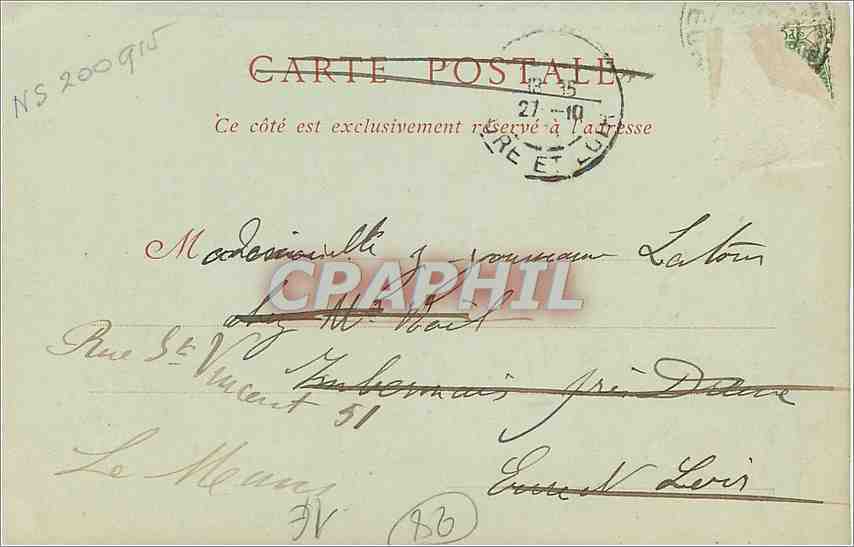 NS 200915
CARTE POSTALE
13 15
27 -10
RE ET LOI
Ce côté est exclusivement réservé à l'adresse
Mademoiselle Latour
CPAPHIL
chez Mr Noël
Rue St Vincent 51
près Dreux
Le Mans
Eure et Loir
86